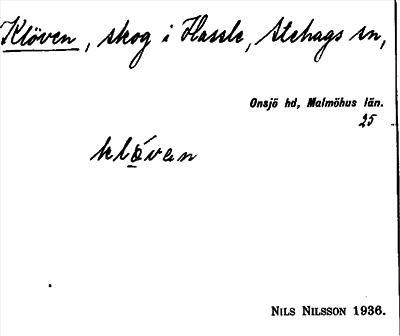 Klöven, skog i Hassle, Stehags sn,
Onsjö hd, Malmöhus län.
25
klövan
NILS NILSSON 1936.